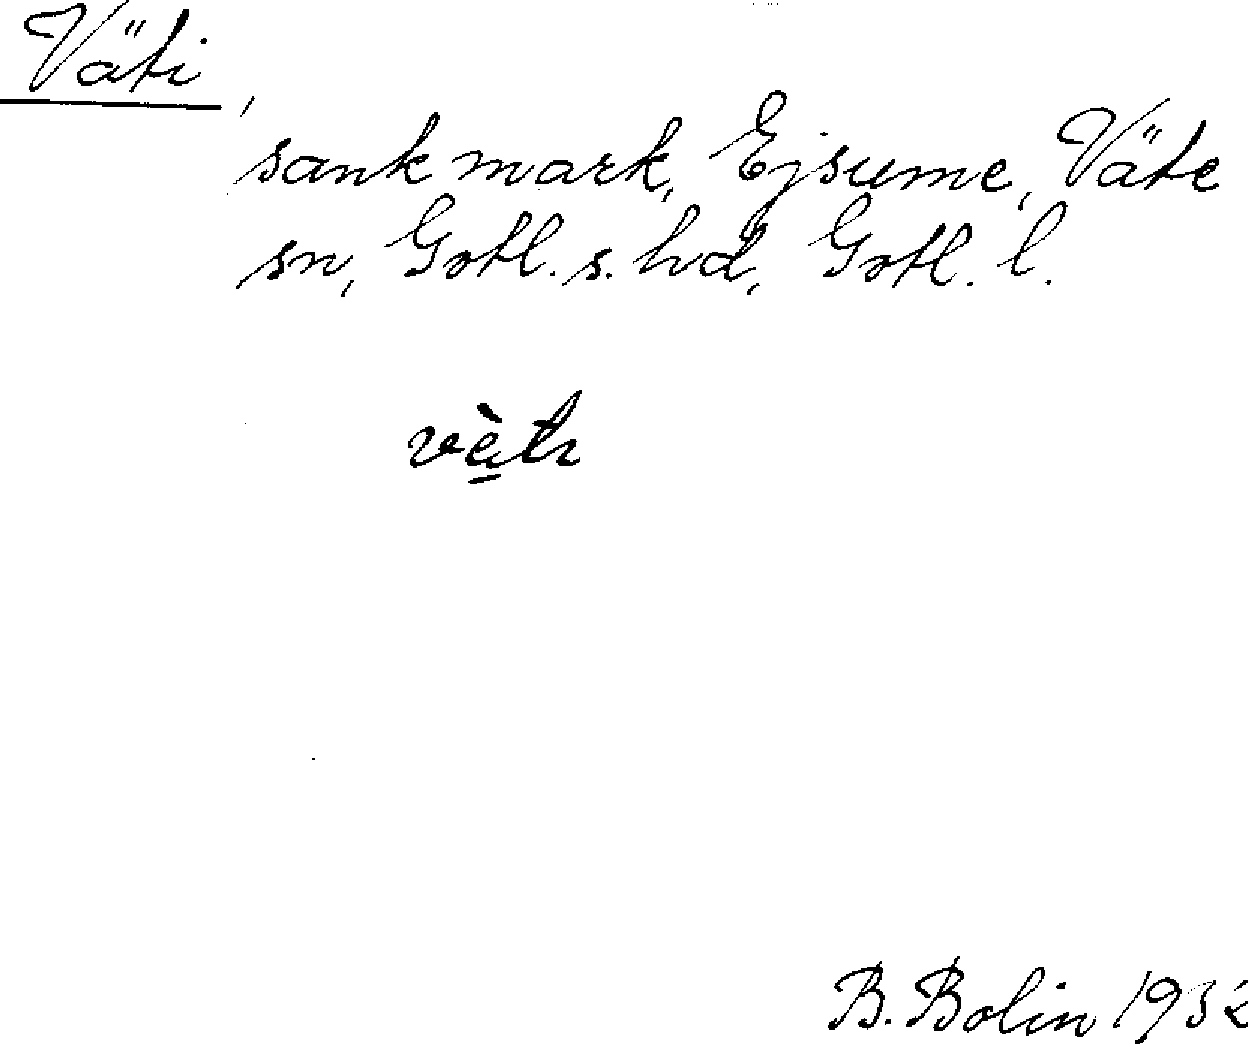 Väti,
sank mark, Ejsume, Väte
sn, Gotl. s. hd, Gotl. l.
vè̱tɩ
B. Bolin 1932